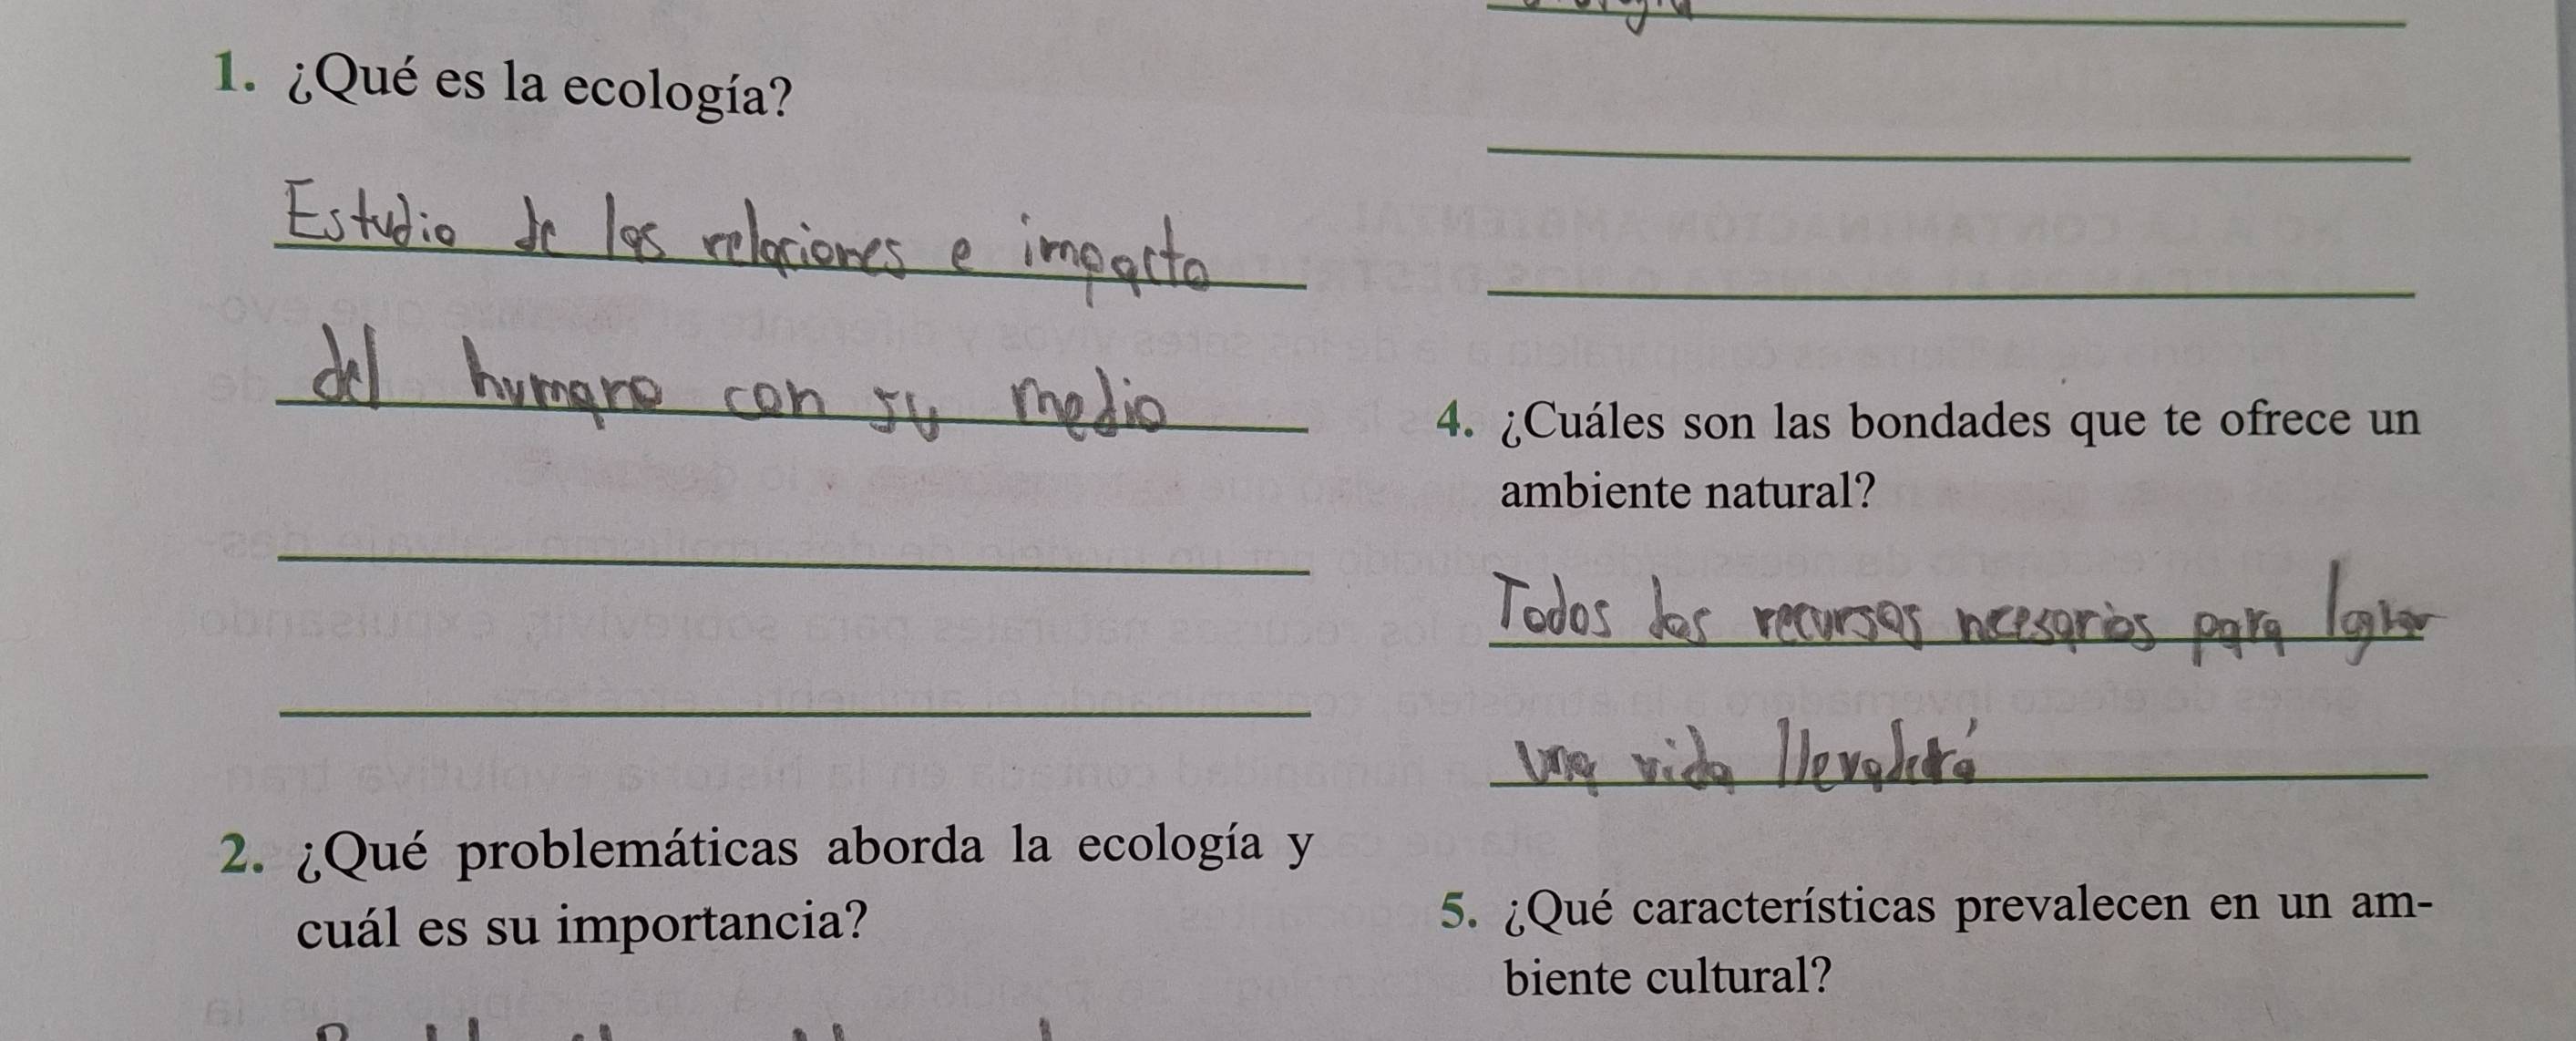 1. ¿Qué es la ecología?
Estudio de las relaciones e impacto
del humano con su medio
2. ¿Qué problemáticas aborda la ecología y
cuál es su importancia?
4. ¿Cuáles son las bondades que te ofrece un
ambiente natural?
Todos los recursos necesarios para lograr
una vida
5. ¿Qué características prevalecen en un am-
biente cultural?